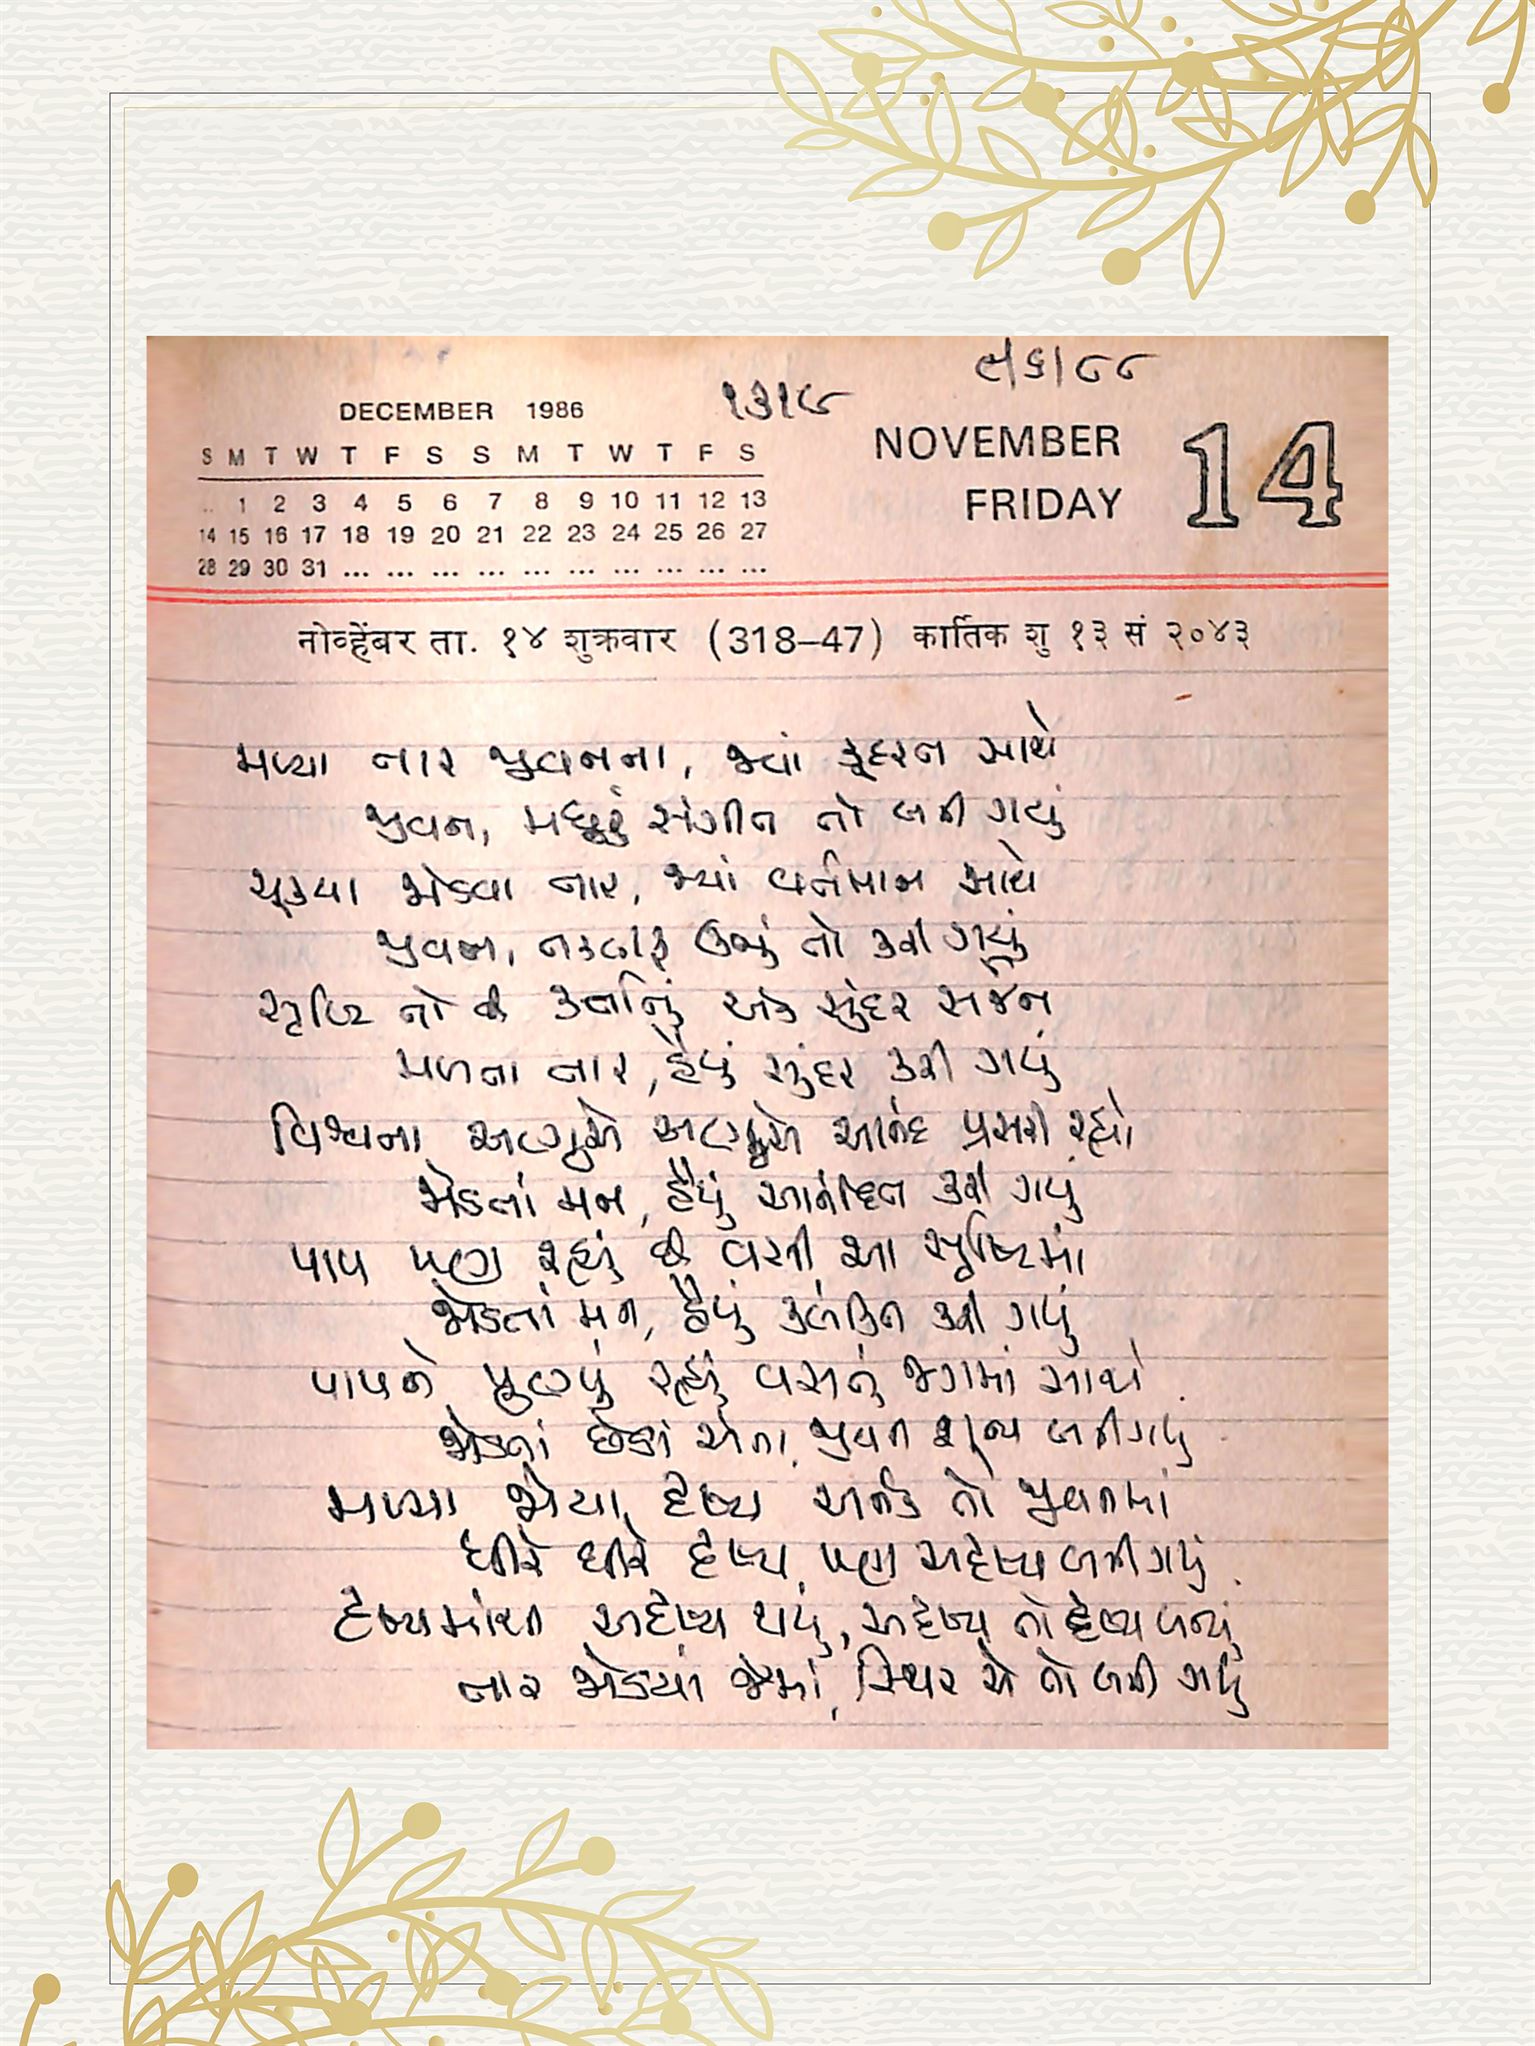 ૯|૬|૮૮
૧૩૧૯
DECEMBER 1986
S M T W T F S S M T W T F S
.. 1 2 3 4 5 6 7 8 9 10 11 12 13
14 15 16 17 18 19 20 21 22 23 24 25 26 27
28 29 30 31 ... ... ... ... ... ... ... ... ... ...
NOVEMBER
FRIDAY
14
नोव्हेंबर ता. १४ शुक्रवार (318–47) कार्तिक शु १३ सं २०४३
મળ્યા તાર જીવનના, જ્યાં કૂદરત સાથે
જીવન, મધુરું સંગીત તો બની ગયું
ચૂક્યા જોડવા તાર, જ્યાં વર્તમાન સાથે
જીવન, તકલીફ ઉભું તો કરી ગયું
સૃષ્ટિ તો છે કર્તાનું એક સુંદર સર્જન
મળતા તાર, હૈયું સુંદર કરી ગયું
વિશ્વના અણુએ અણુએ આનંદ પ્રસરી રહ્યો
જોડતાં મન, હૈયું આનંદિત કરી ગયું
પાપ પણ રહ્યું છે વસી આ સૃષ્ટિમાં
જોડતાં મન, હૈયું કલંકિત કરી ગયું
પાપને પુણ્ય રહ્યું વસતું જગમાં સાથે
જોડતાં છેડાં એના, જીવન શૂન્ય બની ગયું
મળ્યા જોયા દૃશ્ય અનેક તો જીવનમાં
ધીરે ધીરે દૃશ્ય પણ અદૃશ્ય બની ગયું
દૃશ્યમાંથી અદૃશ્ય થયું, અદૃશ્ય તો દૃશ્ય બન્યું
તાર જોડયાં જેમાં, સ્થિર એ તો બની ગયું